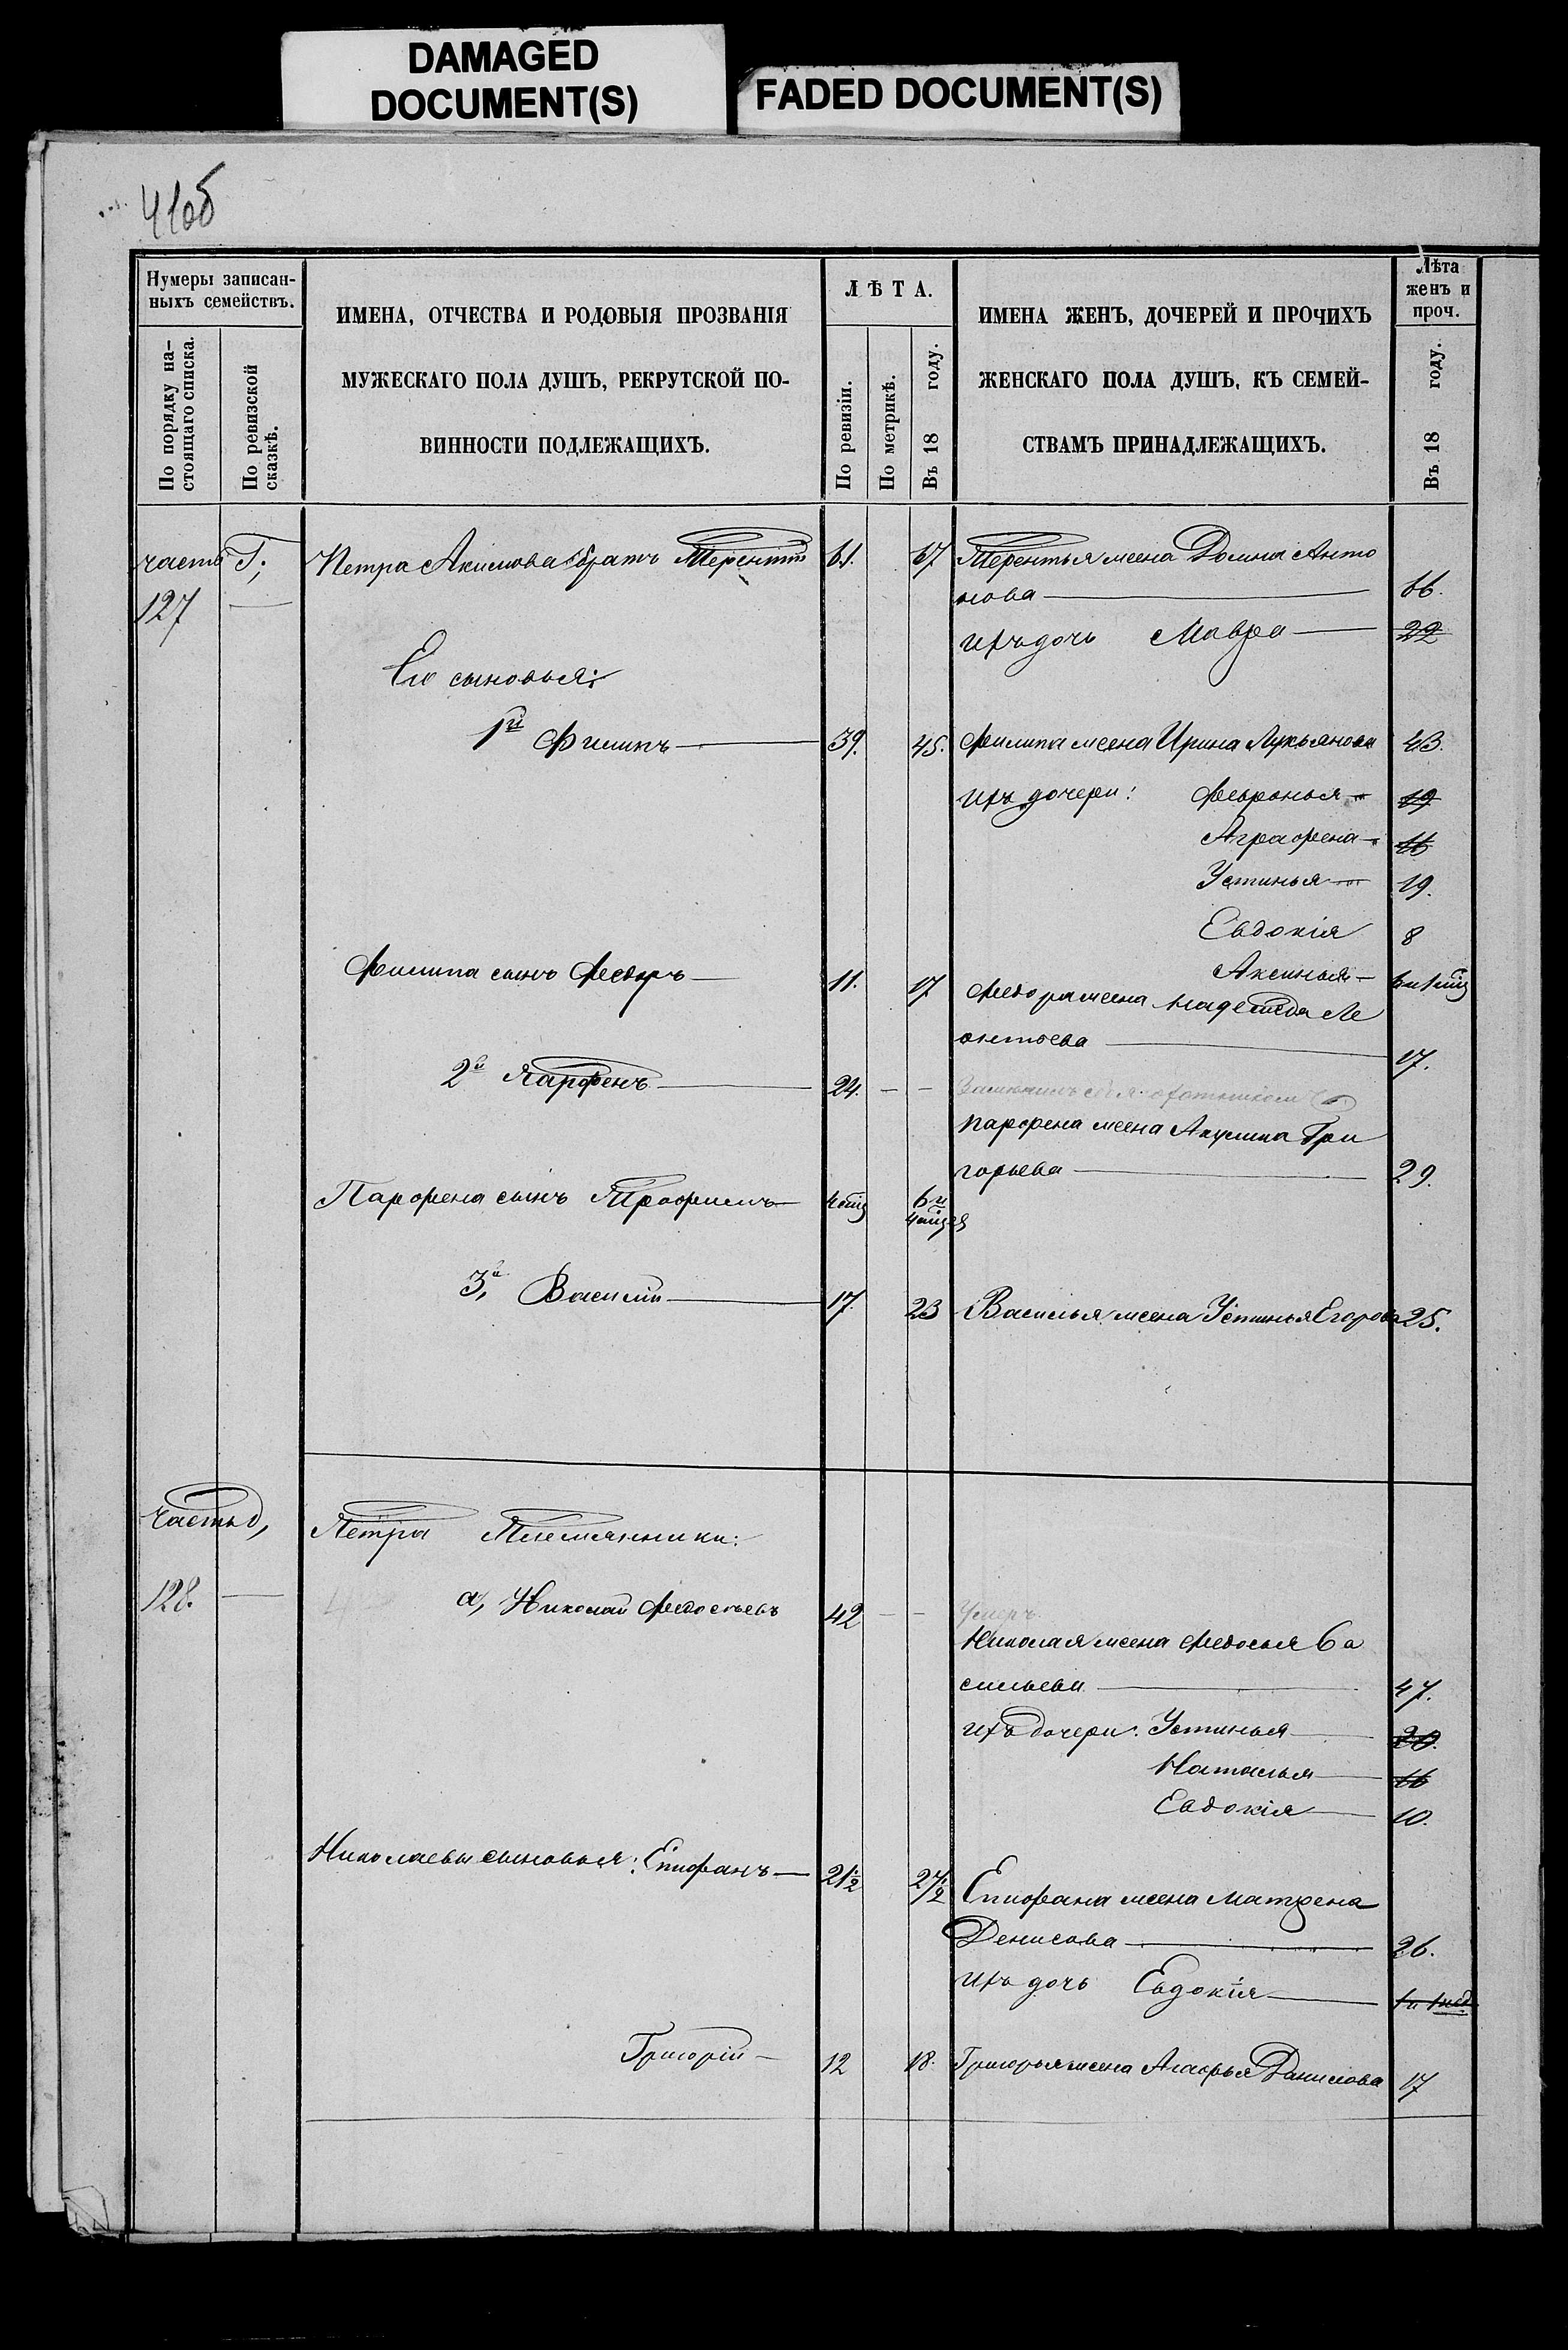 DAMAGED
DOCUMENT(S)
FADED DOCUMENT(S)
41об
Нумеры записан-
ныхъ семействъ.
По порядку на-
стоящаго списка.
По ревизской
сказкѣ.
ИМЕНА, ОТЧЕСТВА И РОДОВЫЯ ПРОЗВАНІЯ
МУЖЕСКАГО ПОЛА ДУШЪ, РЕКРУТСКОЙ ПО-
ВИННОСТИ ПОДЛЕЖАЩИХЪ.
ЛѢТА.
По ревизіи.
По метрикѣ.
Въ 18 году.
ИМЕНА ЖЕНЪ, ДОЧЕРЕЙ И ПРОЧИХЪ
ЖЕНСКАГО ПОЛА ДУШЪ, КЪ СЕМЕЙ-
СТВАМЪ ПРИНАДЛЕЖАЩИХЪ.
Лѣта
женъ и
проч.
Въ 18 году.
часть Г;
127 —
Петра Акимова братъ Терентій 61. 67
Терентья жена Домна Анто
нова — 66.
ихъ дочь Мавра — 22
Его сыновья:
1й Филипъ — 39. 45.
Филипа жена Ирина Лукьянова 43.
Ихъ дочери: Февронья — 19
Аграфена — 16
Устинья — 19.
Евдокія 8
Аксинья —
Филипа сынъ Федоръ — 11. 17
Федора жена Надежда Ле
онтьева — 17.
2й Парфенъ — 24. — —
охотникомъ
Парфена жена Акулина Гри
горьева — 29.
Парфена сынъ Трофимъ — 6 и
3й Василій — 17. 23
Василья жена Устинья Егорова 25.
часть д,
128. —
Петра Племянники:
а, Николай Федосеевъ 42 — —
Умеръ
Николая жена Федосья Ва
сильева — 47.
ихъ дочери: Устинья — 20.
Наталья — 16
Евдокія — 10.
Николаевы сыновья: Епифанъ — 21½ 27½
Епифана жена Матрена
Денисова — 26.
ихъ дочь Евдокія —
Григорій — 12 18.
Григорья жена Агафья Данилова 17